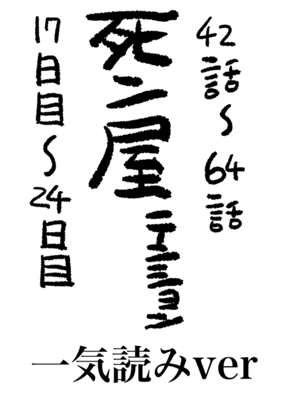 42話〜64話
死ン屋
ニテンション
17日目〜24日目
一気読みver